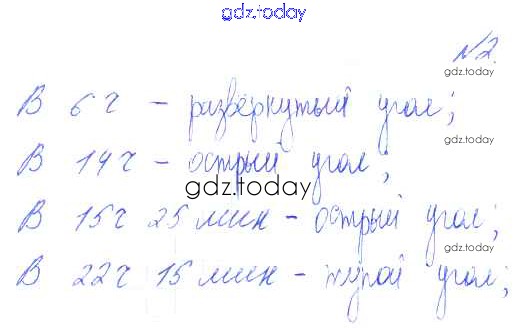 gdz.today
№2.
gdz.today
В 6ч - развернутый угол;
gdz.today
В 14ч - острый угол;
gdz.today
В 15ч 25 мин - острый угол;
gdz.today
В 22ч 15 мин - тупой угол;